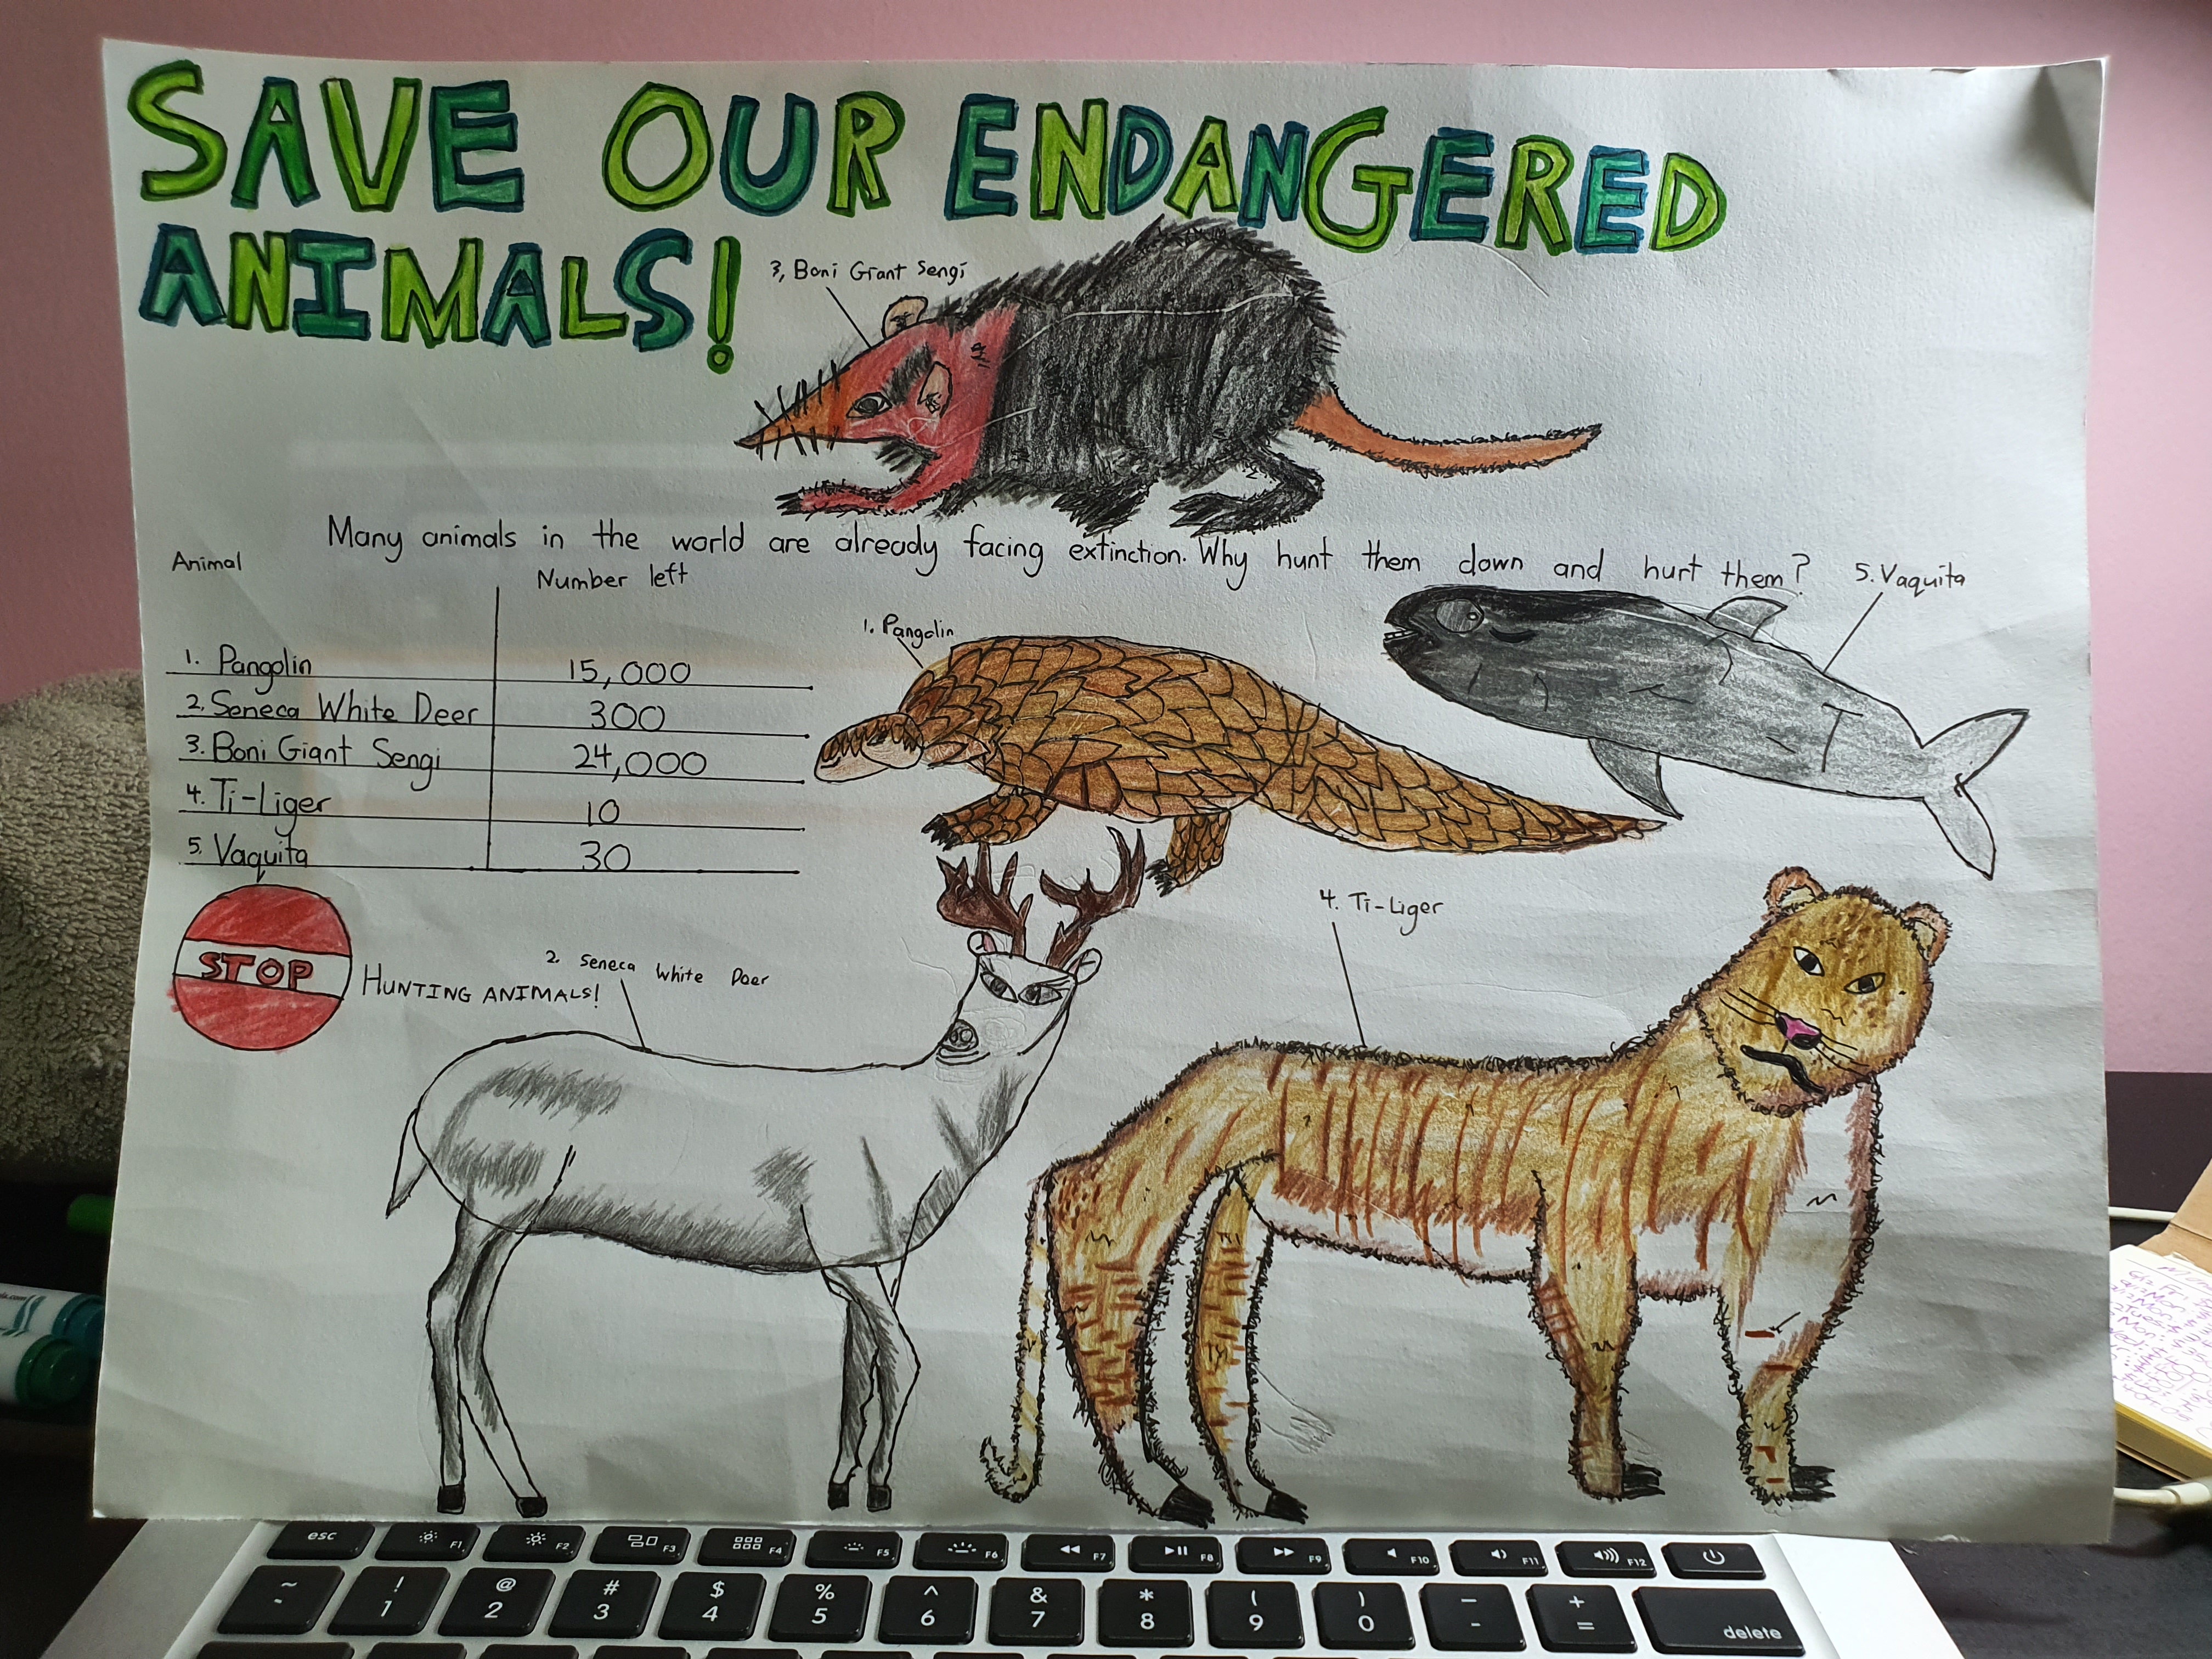 SAVE OUR ENDANGERED
ANIMALS!
3, Boni Giant Sengi
Many animals in the world are already facing extinction. Why hunt them down and hurt them?
Animal Number left
1. Pangolin 15,000
2. Seneca White Deer 300
3. Boni Giant Sengi 24,000
4. Ti-Liger 10
5. Vaquita 30
1. Pangolin
5. Vaquita
STOP HUNTING ANIMALS!
2. Seneca White Deer
4. Ti-Liger
esc F1 F2 F3 F4 F5 F6 F7 F8 F9 F10 F11 F12
~ ! 1 @ 2 # 3 $ 4 % 5 ^ 6 & 7 * 8 ( 9 ) 0 _ - + = delete